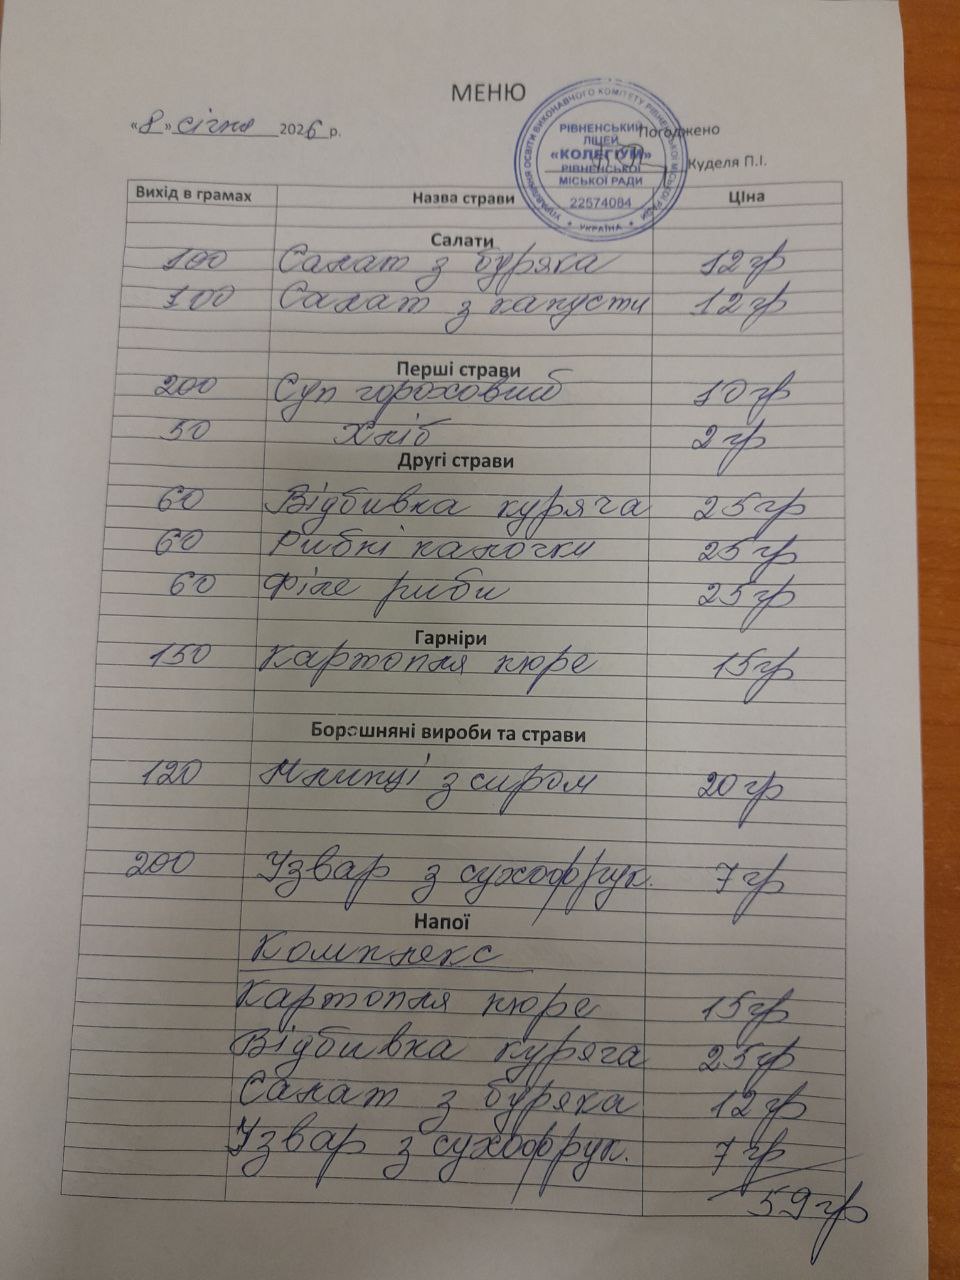 МЕНЮ
«8» січня 2026 р.
УПРАВЛІННЯ ОСВІТИ ВИКОНАВЧОГО КОМІТЕТУ РІВНЕНСЬКОЇ МІСЬКОЇ РАДИ
РІВНЕНСЬКИЙ
ЛІЦЕЙ
«КОЛЕГІУМ»
РІВНЕНСЬКОЇ
МІСЬКОЇ РАДИ
22574084
* УКРАЇНА *
Погоджено
Куделя П.І.
Вихід в грамах Назва страви Ціна
Салати
100 Салат з буряка 12 гр
100 Салат з капусти 12 гр
Перші страви
200 Суп гороховий 10 гр
50 Хліб 2 гр
Другі страви
60 Відбивка куряча 25 гр
60 Рибні палочки 25 гр
60 Філе риби 25 гр
Гарніри
150 Картопля пюре 15 гр
Борошняні вироби та страви
120 Млинці з сиром 20 гр
200 Узвар з сухофрук. 7 гр
Напої
Комплекс
Картопля пюре 15 гр
Відбивка куряча 25 гр
Салат з буряка 12 гр
Узвар з сухофрук. 7 гр
59 гр